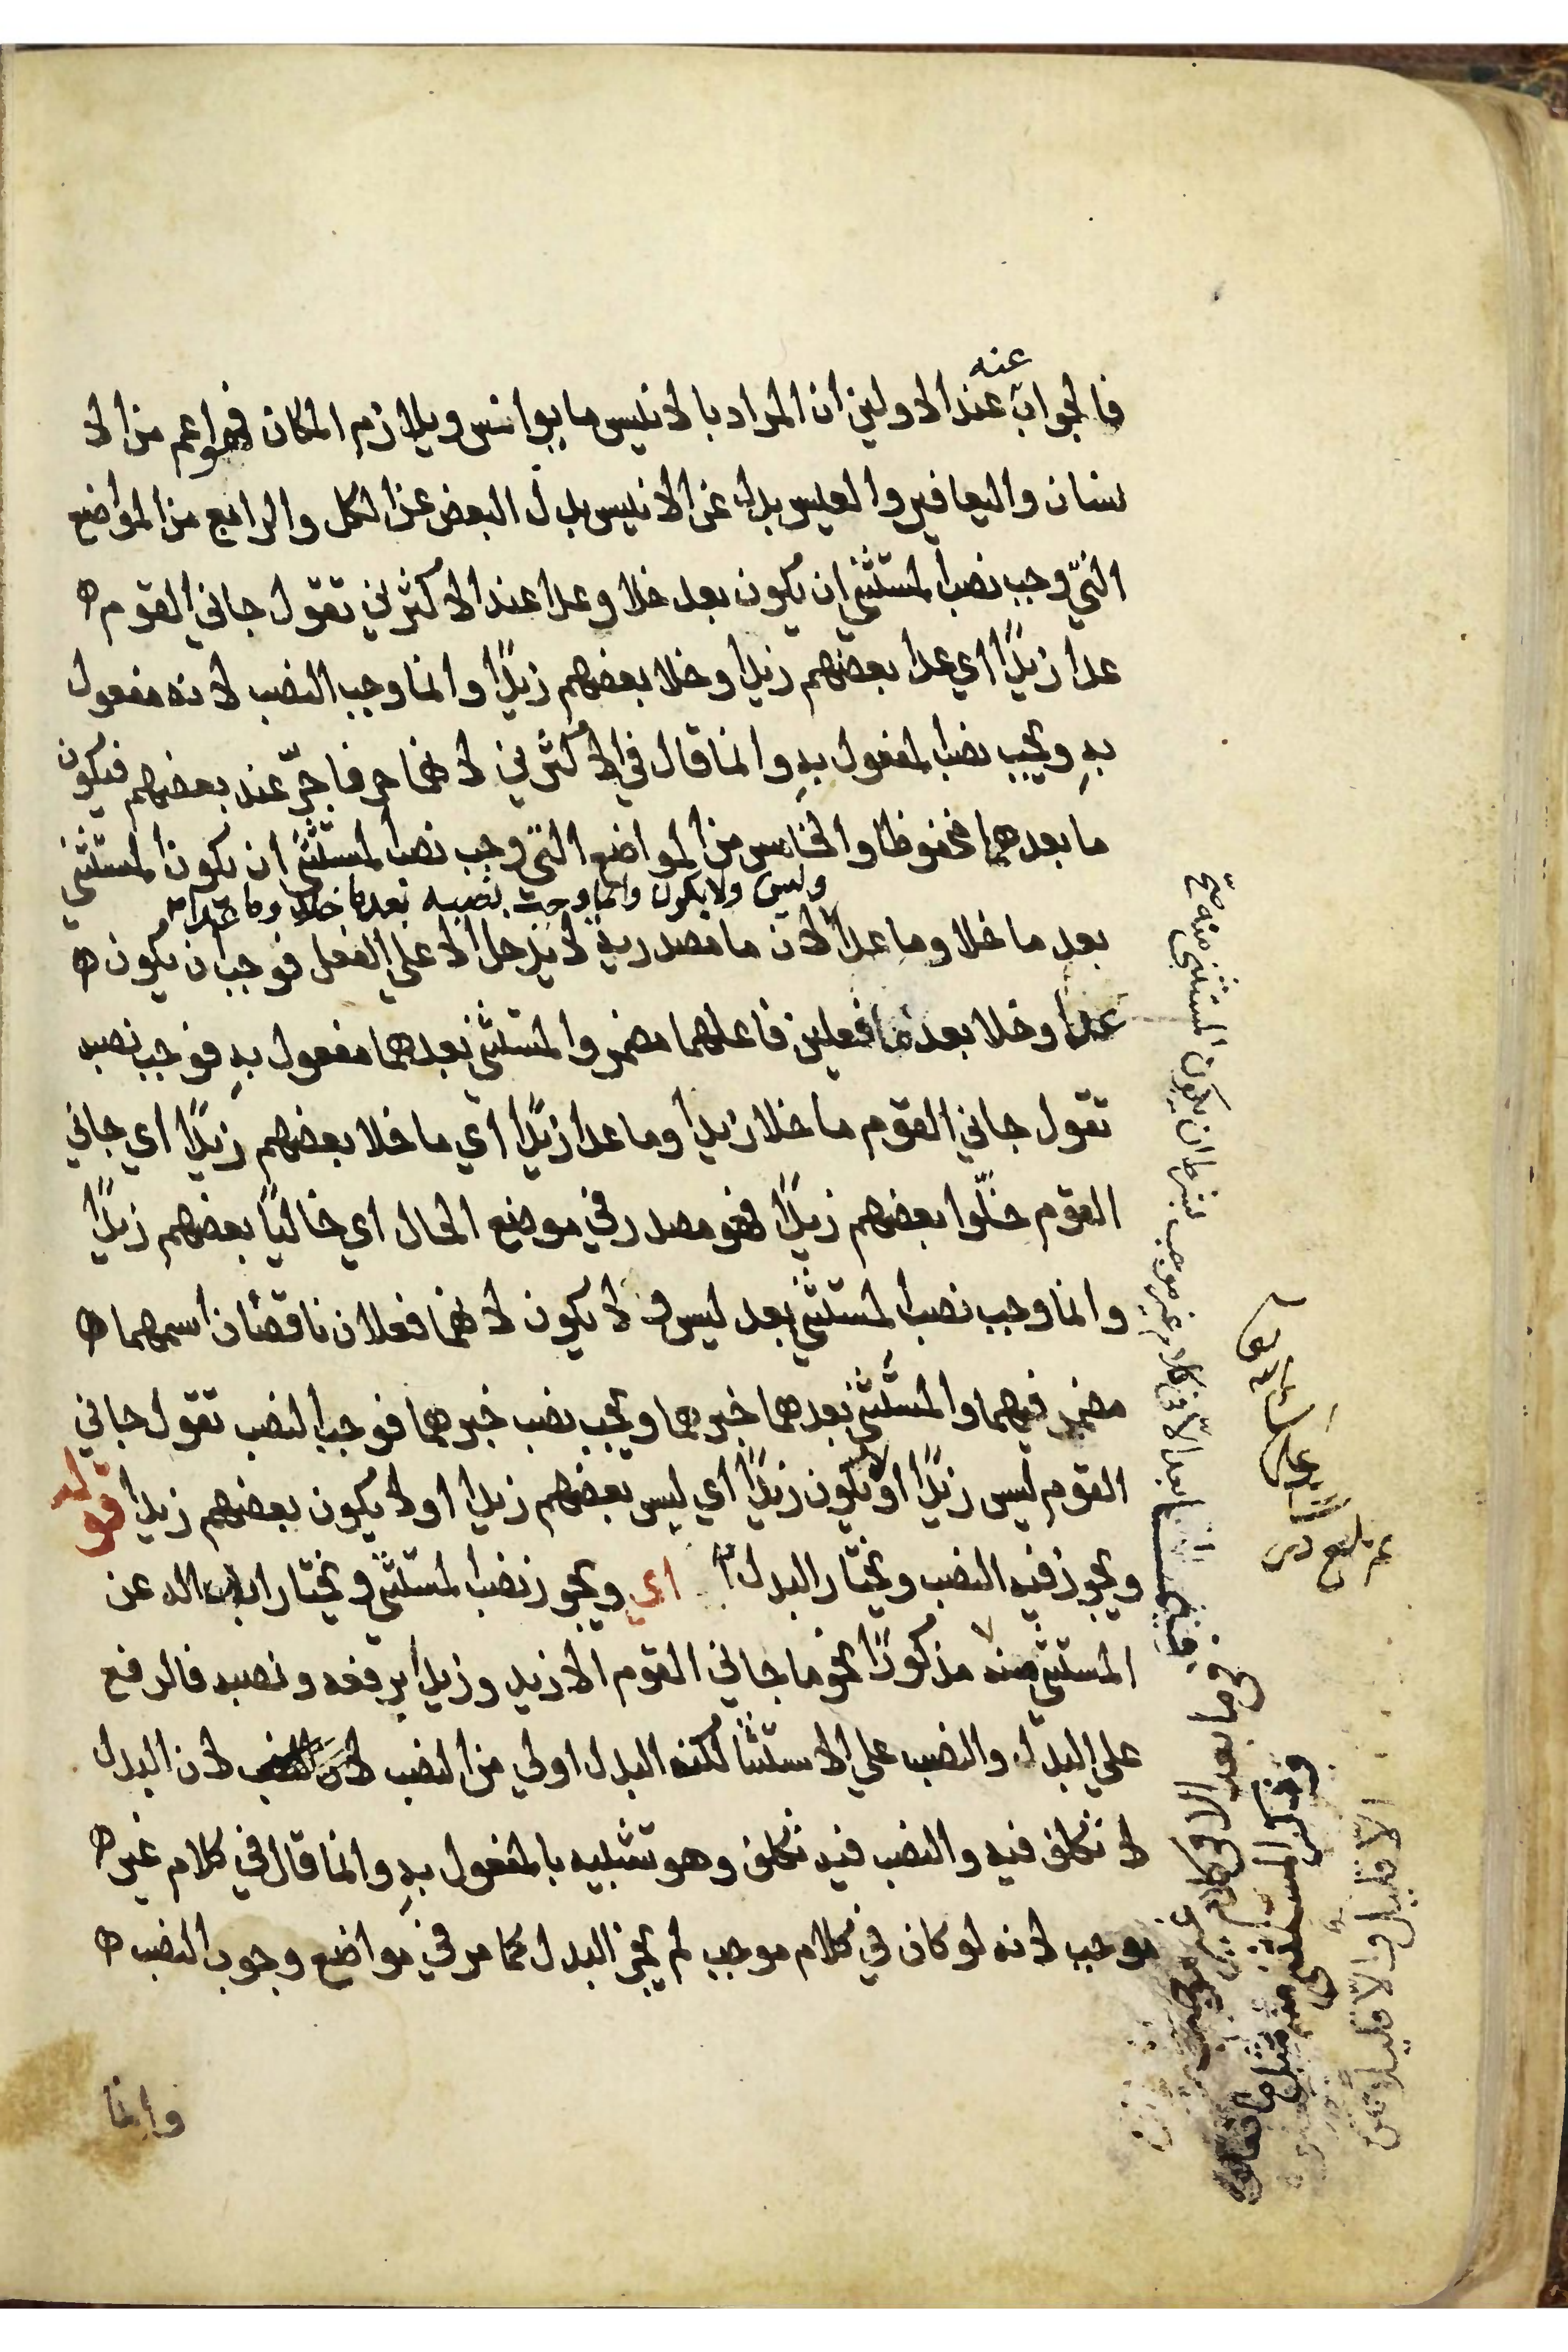 عنه
فالجواب عند الاولين ان المراد بالانيس ما يوانس ويلازم المكان فهو اعم من الا
نسان واليعافير والعيس بدل عن الانيس بدل البعض عن الكل والرابع من المواضع
التي وجب نصب المستثني ان يكون بعد خلا وعدا عند الاكثر ني تقول جاني القوم
عدا زيدًا اي عدا بعضهم زيدا وخلا بعضهم زيدًا وانما وجب النصب لانه مفعول
به ويجب نصب المفعول به وانما قال في الاكثر ني لانهما حرفا جرّ عند بعضهم فيكون
ما بعدهما مخفوظا والخامس من المواضع التي وجب نصب المستثني ان يكون المستثني
وليس ولا يكون وانما وجب نصبه بعد ما خلا وما عدا
بعد ما خلا وما عدا لان ما مصدرية لا يدخل الا علي الفعل فوجب ان يكون
عدا وخلا بعد ما فعلين فاعلهما مضمر والمستثني بعدهما مفعول به فوجب نصبه
تقول جاني القوم ما خلا زيدا وما عدا زيدًا اي ما خلا بعضهم زيدًا اي جاني
القوم خلّوا بعضهم زيدًا فهو مصدر في موضع الحال اي خاليًا بعضهم زيدًا
وانما وجب نصب المستثني بعد ليس ولا يكون لانهما فعلان ناقصان اسمهما
مضمر فيهما والمستثني بعدهما خبرهما ويجب نصب خبرهما فوجب النصب تقول جاني
القوم ليس زيدًا او لا يكون زيدًا اي ليس بعضهم زيدا او لا يكون بعضهم زيدا قوله
ويجوز فيه النصب ويختار البدل اي ويجوز نصب المستثني ويختار ابداله عن
المستثني منه مذكورًا نحو ما جاني القوم الا زيد وزيدا برفعه ونصبه فالرفع
علي البدل والنصب علي الاستثنا لكنه البدل اولي من النصب لان البدل
لا تكلف فيه والنصب فيه تكلف وهو تشبيه بالمفعول به وانما قال في كلام غير
موجب لانه لو كان في كلام موجب لم يجز البدل كما مر في مواضع وجوب النصب
وانما
بعد الا في كلام غير موجب بشرط ان يكون المستثنى منه صح
في ما بعد الا في كلام غير موجب
وذكر المستثنى منه مثل ما فعلوه
الا قليل والا قليلا